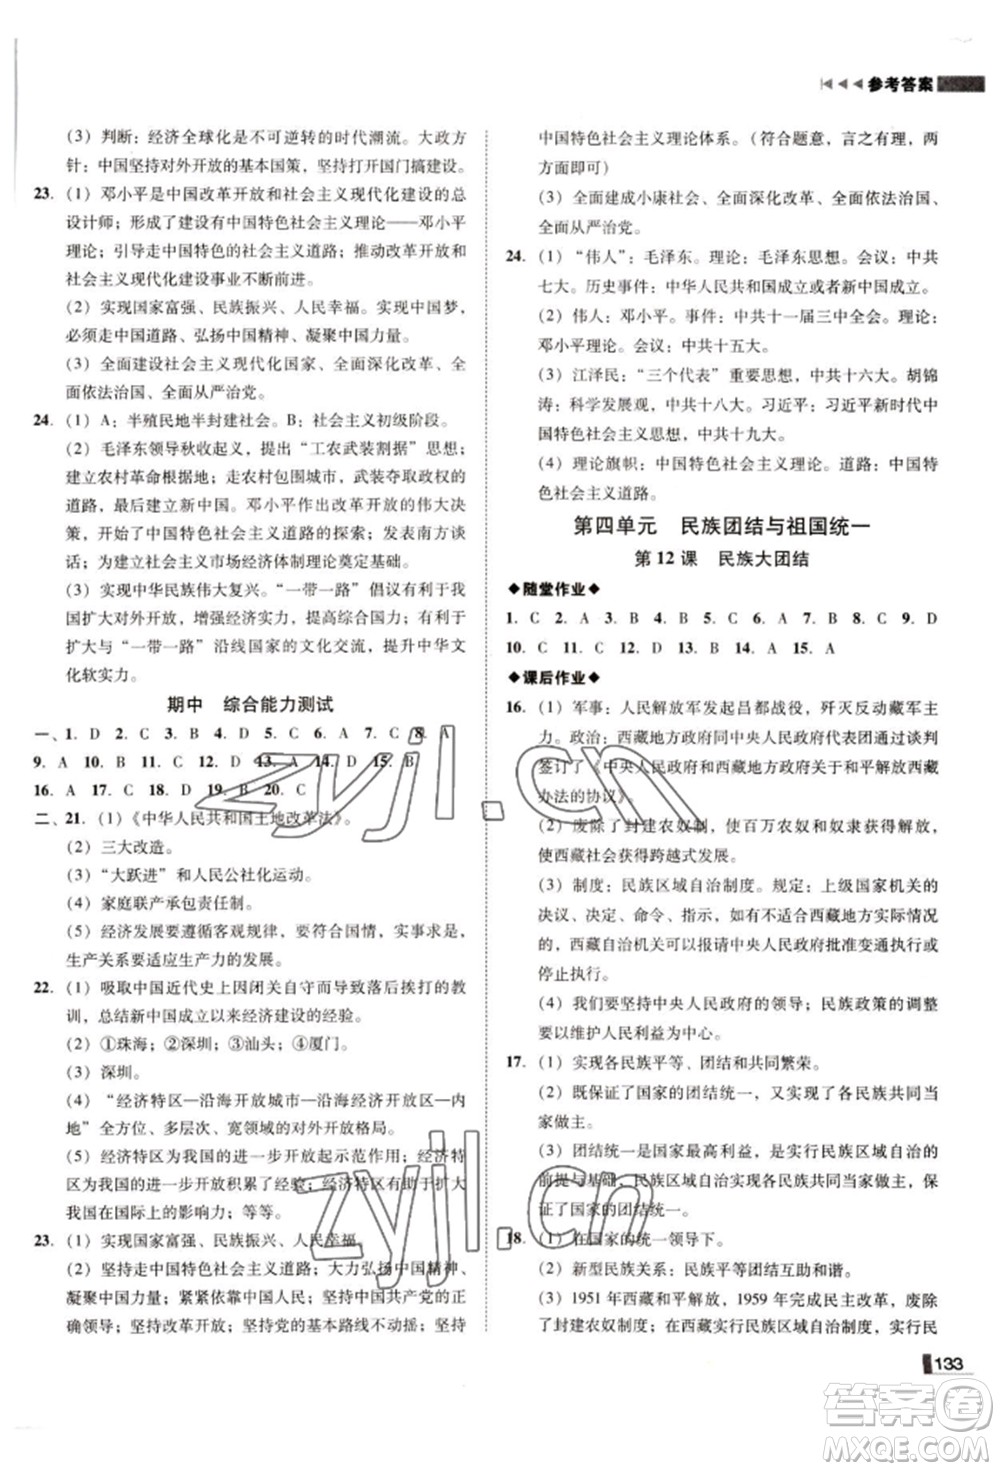 参考答案
（3）判断：经济全球化是不可逆转的时代潮流。大政方
针：中国坚持对外开放的基本国策，坚持打开国门搞建设。
23.（1）邓小平是中国改革开放和社会主义现代化建设的总
设计师；形成了建设有中国特色社会主义理论——邓小平
理论；引导走中国特色的社会主义道路；推动改革开放和
社会主义现代化建设事业不断前进。
（2）实现国家富强、民族振兴、人民幸福。实现中国梦，
必须走中国道路、弘扬中国精神、凝聚中国力量。
（3）全面建设社会主义现代化国家、全面深化改革、全
面依法治国、全面从严治党。
24.（1）A：半殖民地半封建社会。B：社会主义初级阶段。
（2）毛泽东领导秋收起义，提出“工农武装割据”思想；
建立农村革命根据地；走农村包围城市，武装夺取政权的
道路，建立新中国。邓小平作出改革开放的伟大决
策，开始了中国特色社会主义道路的探索；发表南方谈
话；为建立社会主义市场经济体制理论奠定基础。
（3）实现中华民族伟大复兴。“一带一路”倡议有利于我
国扩大对外开放，增强我国的综合国力；有利于
扩大与“一带一路”沿线国家的文化交流，提升中华文
化软实力。
期中　综合能力测试
一、1. D 2. C 3. B 4. D 5. C 6. A 7. C 8. A
9. A 10. B 11. C 12. D 13. A 14. D 15. B
16. A 17. C 18. D 19. B 20. C
二、21.（1）《中华人民共和国土地改革法》。
（2）三大改造。
（3）“大跃进”和人民公社化运动。
（4）家庭联产承包责任制。
（5）经济发展要遵循客观规律，要符合国情，实事求是；
生产关系要适应生产力的发展。
22.（1）吸取中国近代史上因闭关自守而导致落后挨打的教
训，总结新中国成立以来经济建设的经验。
（2）①珠海；②深圳；③汕头；④厦门。
（3）深圳。
（4）“经济特区—沿海开放城市—沿海经济开放区—内
地”全方位、多层次、宽领域的对外开放格局。
（5）经济特区为我国的进一步开放起示范作用；经济特
区为中国的进一步开放积累了经验；经济特区有利于扩大
我国在国际上的影响力；等等。
23.（1）实现国家富强、民族振兴、人民幸福。
（2）坚持走中国特色社会主义道路；大力弘扬中国精神、
凝聚中国力量；紧紧依靠人民；坚持中国共产党的正
确领导；坚持改革开放；坚持党的基本路线不动摇；坚持
中国特色社会主义理论体系。（符合题意，言之有理，两
方面即可）
（3）全面建成小康社会、全面深化改革、全面依法治国、
全面从严治党。
24.（1）“伟人”：毛泽东。理论：毛泽东思想。会议：中共
七大。历史事件：中华人民共和国成立。
（2）伟人：邓小平。事件：中共十一届三中全会。理论：
邓小平理论。会议：中共十五大。
（3）江泽民：“三个代表”重要思想，中共十六大。胡锦
涛：科学发展观，中共十八大。习近平：习近平新时代中
国特色社会主义思想，中共十九大。
（4）理论旗帜：中国特色社会主义理论。道路：中国特
色社会主义道路。
第四单元　民族团结与祖国统一
第12课　民族大团结
◆随堂作业◆
1. C 2. A 3. B 4. A 5. B 6. B 7. C 8. C 9. D
10. C 11. C 12. D 13. B 14. A 15. A
◆课后作业◆
16.（1）军事：人民解放军发起昌都战役，歼灭反动藏军主
力。政治：西藏地方政府同中央人民政府代表团通过谈判
签订了《中央人民政府和西藏地方政府关于和平解放西藏
办法的协议》。
（2）废除了封建农奴制，使百万农奴和奴隶获得解放，
使西藏社会获得跨越式发展。
（3）制度：民族区域自治制度。规定：上级国家机关的
决议、决定、命令、指示，如有不适合西藏地方实际情况
的，西藏自治机关可以报请中央人民政府批准变通执行或
停止执行。
（4）我们要坚持中央人民政府的领导；民族政策的调整
要以维护人民利益为中心。
17.（1）实现各民族平等、团结和共同繁荣。
（2）既保证了国家的团结统一，又实现了各民族共同当
家做主。
（3）团结统一是国家最高利益，是实行民族区域自治的
前提与基础，民族区域自治制度的实行，又进一步保
证了国家的团结统一。
18.（1）在国家的统一领导下。
（2）新型民族关系：民族平等团结互助和谐。
（3）1951年西藏和平解放，1959年完成民主改革，废除
了封建农奴制度；在西藏实行民族区域自治制度，实行民
133
zyjl.cn
zyjl.cn
答案圈
MXQE.COM